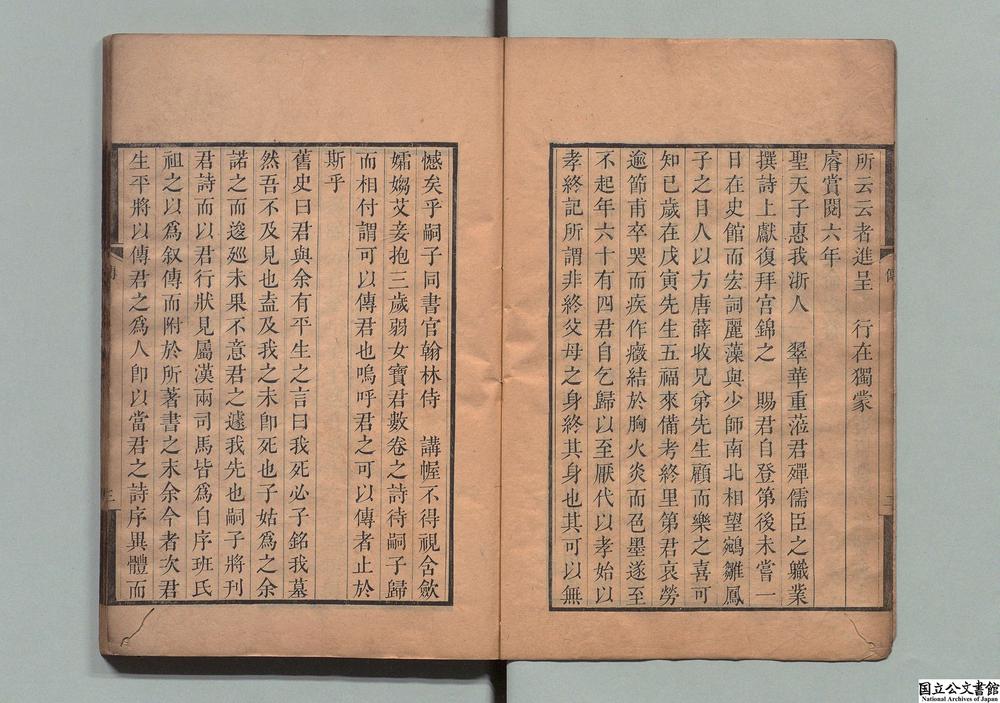 所云云者進呈　行在獨蒙
睿賞閱六年
聖天子惠我浙人　翠華重蒞君殫儒臣之職業
撰詩上獻復拜宮錦之　賜君自登第後未嘗一
日在史館而宏詞麗藻與少師南北相望鵷雛鳳
子之目人以方唐薛收兄弟先生顧而樂之喜可
知已歲在戊寅先生五福來備考終里第君哀勞
逾節甫卒哭而疾作癥結於胸火炎而色墨遂至
不起年六十有四君自乞歸以至厭代以孝始以
孝終記所謂非終父母之身終其身也其可以無
憾矣乎嗣子同書官翰林侍　講幄不得視含歛
孀嫋艾妾抱三歲弱女寶君數卷之詩待嗣子歸
而相付謂可以傳君也嗚呼君之可以傳者止於
斯乎
舊史曰君與余有平生之言曰我死必子銘我墓
然吾不及見也盍及我之未卽死也子姑爲之余
諾之而逡廵未果不意君之遽我先也嗣子將刊
君詩而以君行狀見屬漢兩司馬皆爲自序班氏
祖之以爲叙傳而附於所著書之末余今者次君
生平將以傳君之爲人卽以當君之詩序異體而
傳
二
傳
三
国立公文書館
National Archives of Japan